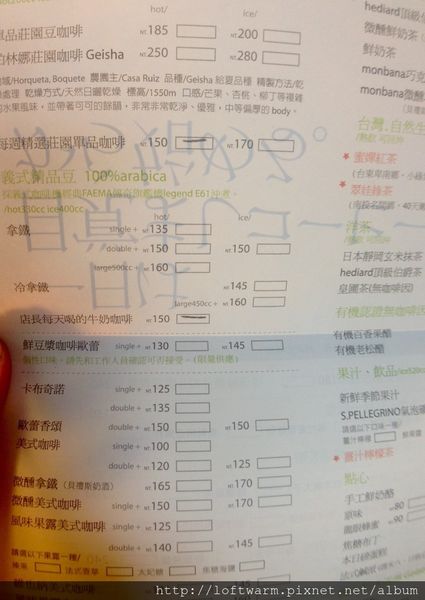 hot/ ice/
單品莊園豆咖啡 NT.185 NT.200
柏林娜莊園咖啡 Geisha NT.250 NT.280
域/Horqueta, Boquete 農園主/Casa Ruiz 品種/Geisha 給夏品種 精製方法/乾
處理 乾燥方式/天然日曬乾燥 標高/1550m 口感/芒果、杏桃、柳丁等複雜
的水果風味，並帶著可可的餘韻，非常非常乾淨、優雅，中等偏厚的 body。
每週精選莊園單品咖啡 NT.150 NT.170
義式調品豆 100%arabica
/hot330cc ice400cc
hot/ ice/
拿鐵 single + NT.135
double + NT.150 NT.150
large500cc + NT.160
冷拿鐵 NT.145
large450cc + NT.160
店長每天喝的牛奶咖啡 NT.150
鮮豆漿咖啡歐蕾 single + NT.130 NT.145
個性口味，請先和工作人員確認可否接受。(限量供應)
卡布奇諾 single + NT.125
double + NT.135
歐蕾香頌 double + NT.150 NT.150
美式咖啡 single + NT.100
double + NT.120 NT.125
微醺拿鐵 (貝禮斯奶酒) NT.165 NT.170
微醺美式咖啡 single + NT.150 NT.170
風味果露美式咖啡 single + NT.125
double + NT.140 NT.145
請選以下果露一種/
榛果 法式香草 太妃糖 焦糖海鹽
維也納美式咖啡
hediard頂級
微醺鮮奶茶
鮮奶茶
monbana巧克
monbana微醺
台灣.自然生
★ 蜜香紅茶
★ 翠玉綠茶
洋茶
日本靜岡玄米抹茶
hediard頂級伯爵茶
皇圃茶(無咖啡因)
有機認證無咖啡因
有機百香果醋
有機老松醋
果汁、飲品/ice520cc
新鮮季節果汁
S.PELLEGRINO氣泡礦
請選以下口味一種/
薑汁檸檬
★ 薑汁檸檬茶
點心
手工鮮奶酪
原味 NT.80
龍眼蜂蜜 NT.90
焦糖布丁
本日磅蛋糕
http://loftwarm.pixnet.net/album